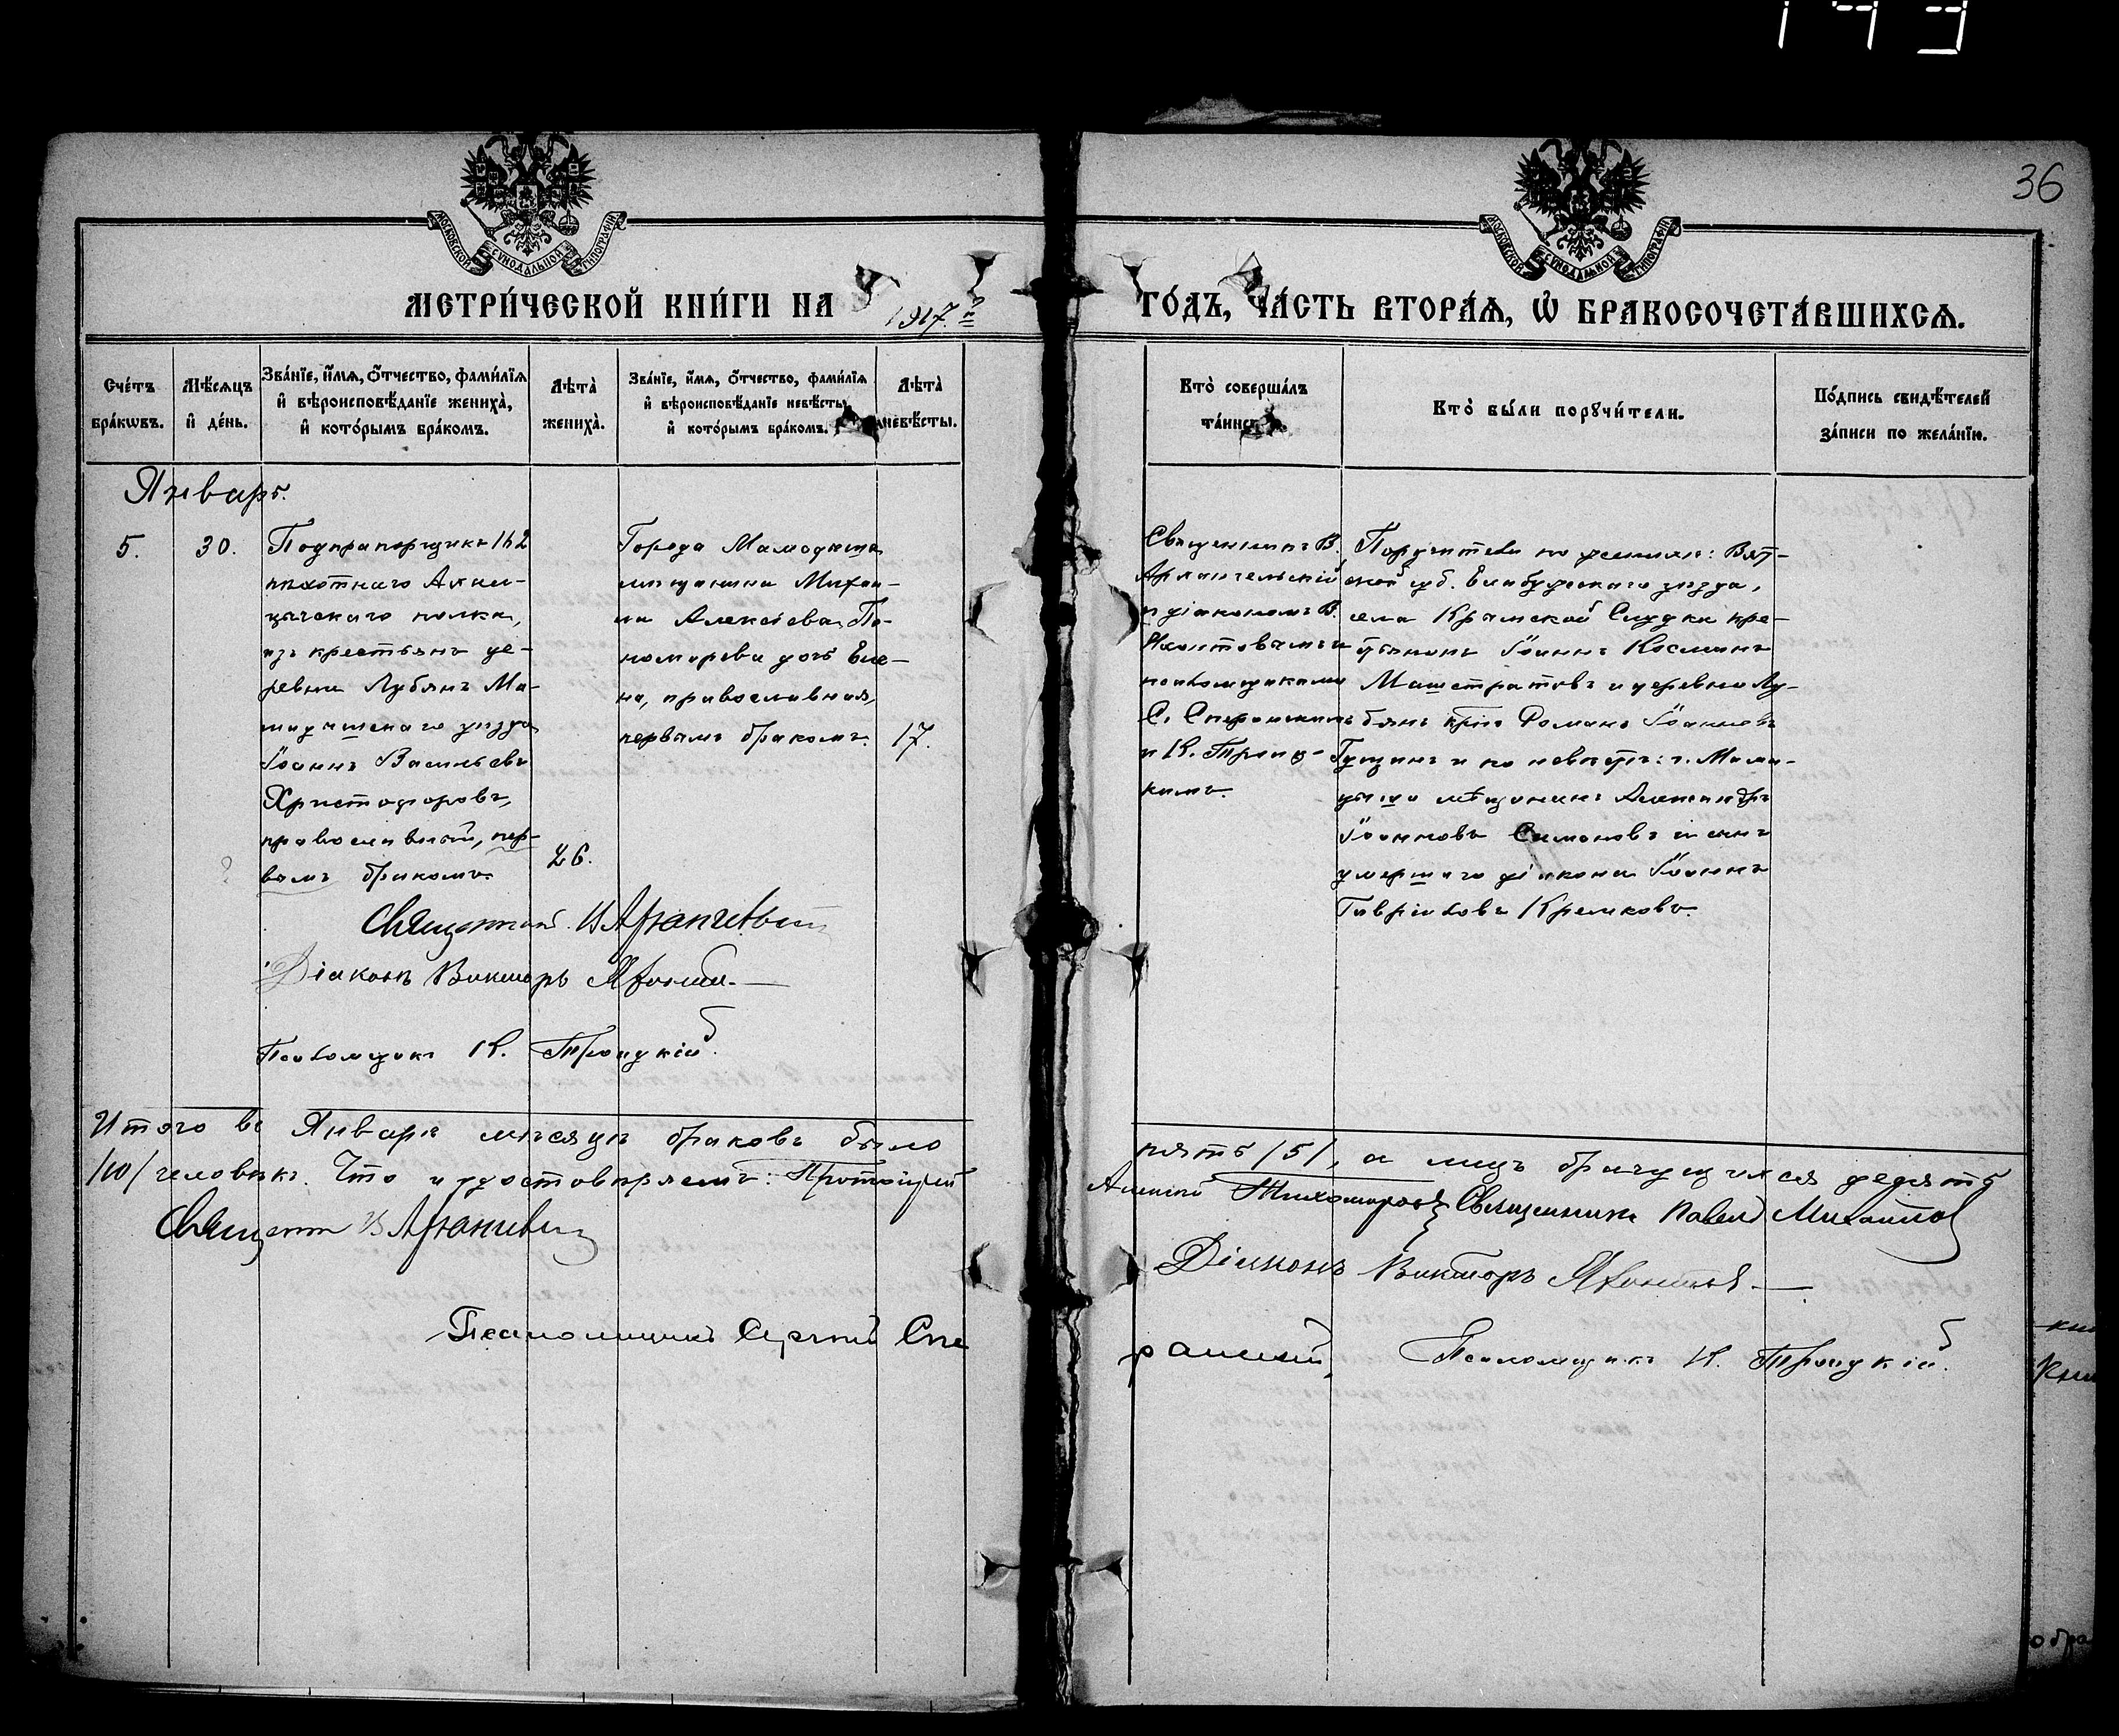 36
МОСКОВСКОЙ СѴНОДАЛЬНОЙ ТИПОГРАФІИ
МОСКОВСКОЙ СѴНОДАЛЬНОЙ ТИПОГРАФІИ
МЕТРИ́ЧЕСКОЙ КНИ́ГИ НА 1917 й
ГО́ДЪ, ЧА́СТЬ ВТОРА́Ѧ, Ѽ БРАКОСОЧЕТА́ВШИХСѦ.
Сче́тъ бра́кѡвъ.
Мѣ́сѧцъ и҆ де́нь.
Зва́нїе, и҆́мѧ, ѻ҆́тчество, фами́лїѧ
и҆ вѣроисповѣ́данїе жениха̀,
и҆ кото́рымъ бра́комъ.
Лѣта̀ жениха̀.
Зва́нїе, и҆́мѧ, ѻ҆́тчество, фами́лїѧ
и҆ вѣроисповѣ́данїе невѣ́сты,
и҆ кото́рымъ бра́комъ.
Лѣта̀ невѣ́сты.
Кто̀ соверша́лъ
Кто̀ бы́ли порꙋчи́тели.
По́дпись свидѣ́телей
за́писи по жела́нїю.
Январь.
5.
30.
Подпрапорщикъ 162
пѣхотнаго Ахал-
цыхскаго полка,
изъ крестьянъ де-
ревни Лубянъ Ма-
мадышскаго уѣзда
Іоаннъ Васильевъ
Христофоровъ,
православный, пер-
вымъ бракомъ.
26.
Города Мамадыша
мѣщанина Михаи-
ла Алексѣева По-
номарева дочь Еле-
на, православная,
первымъ бракомъ.
17.
Священникъ В.
Архангельскій
и діакономъ В.
Яхонтовымъ и
псаломщиками
С. Сперанскимъ
и К. Троиц-
кимъ.
Поручители по женихѣ: Вят-
ской губ. Елабужскаго уѣзда,
села Крымской Слудки кре-
стьянинъ Іоаннъ Косминъ
Машстратовъ и деревни Лу-
бянъ кр-нъ Романъ Іоанновъ
Гущинъ и по невѣстѣ: г. Мама-
дыша мѣщанинъ Александръ
Іоанновъ Симоновъ и сынъ
умершаго діакона Іоаннъ
Гавріиловъ Кремковъ.
Священникъ В Архангельскій
Діаконъ Викторъ Яхонтовъ
Псаломщикъ К. Троицкій
Итого въ Январѣ мѣсяцѣ браковъ было пять /5/, а лицъ брачущихся десять
/10/ человѣкъ. Что и удостовѣряемъ: Протоіерей Алексій Тихомировъ Священникъ Павелъ Михайловъ
Священникъ В Архангельскій
Діаконъ Викторъ Яхонтовъ
Псаломщикъ Сергій Сперанскій, Псаломщикъ К. Троицкій.